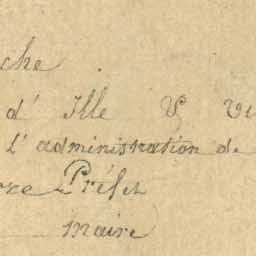 che
d' Ille & Vi
l'administration de
Préfet
maire